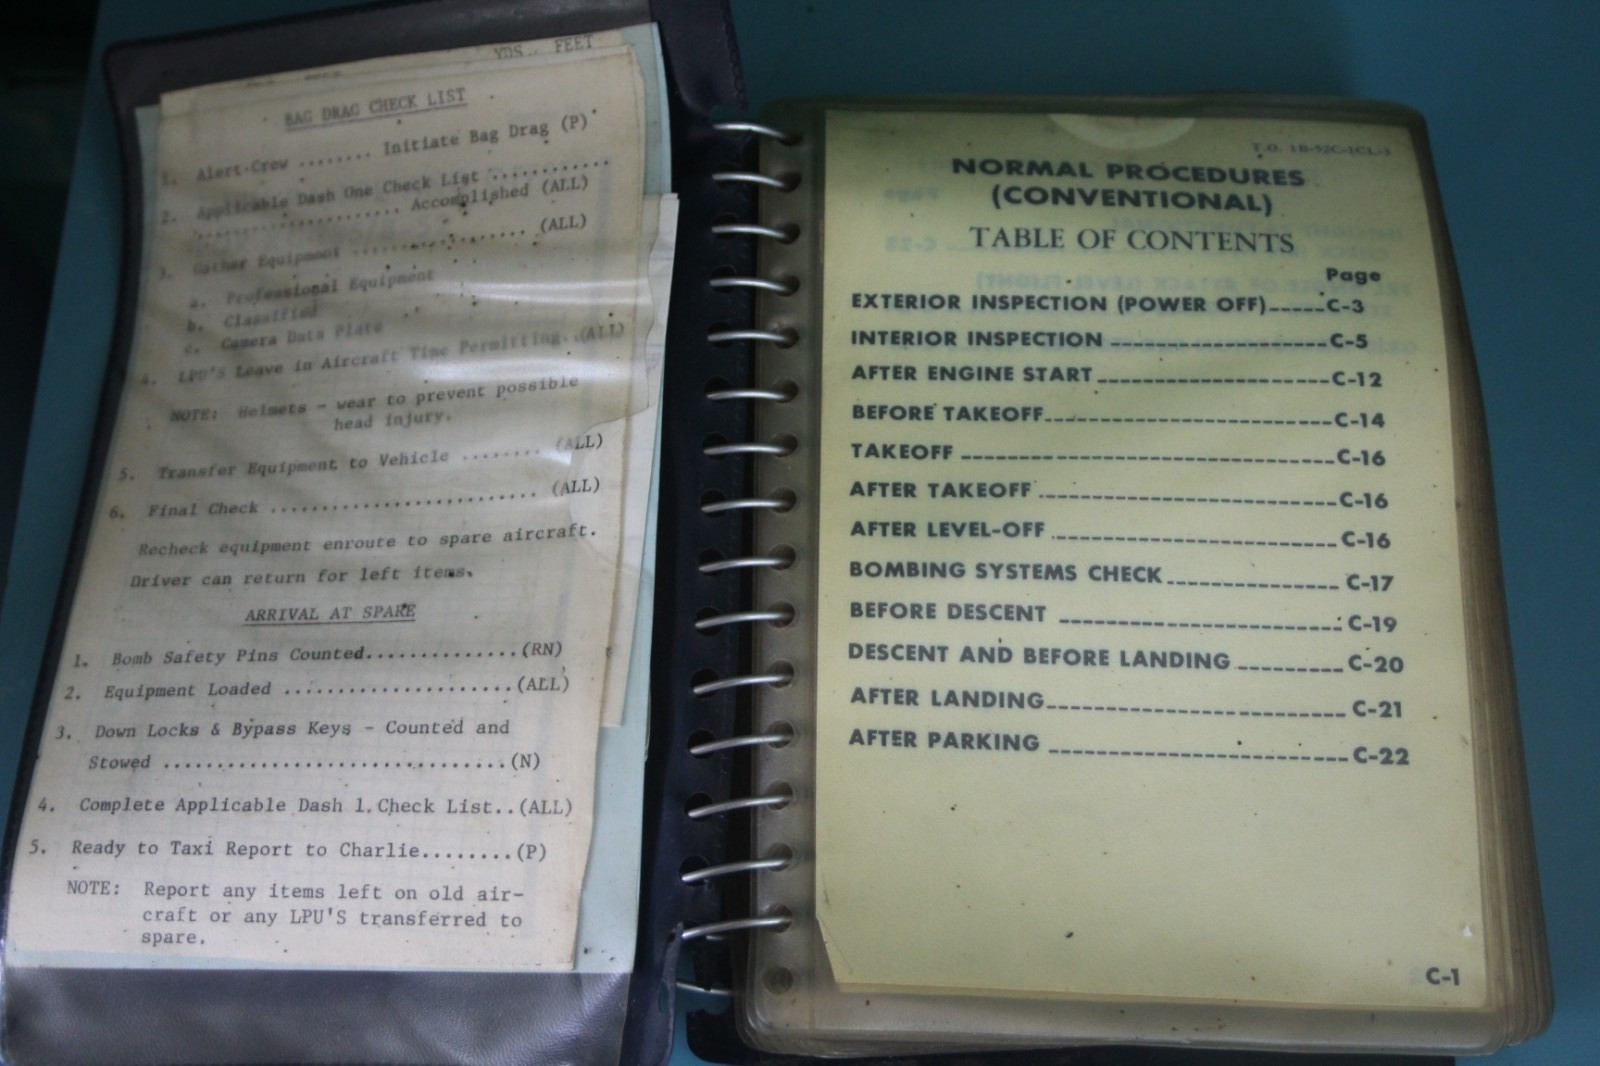 YDS. FEET
BAG DRAG CHECK LIST
1. Alert Crew ........ Initiate Bag Drag (P)
2. Applicable Dash One Check List ............
................ Accomplished (ALL)
3. Gather Equipment ................. (ALL)
a. Professional Equipment
b. Classified
c. Camera Data Plate
4. LPU'S Leave in Aircraft Time Permitting..(ALL)
NOTE: Helmets - wear to prevent possible
head injury.
5. Transfer Equipment to Vehicle ........ (ALL)
6. Final Check .......................... (ALL)
Recheck equipment enroute to spare aircraft.
Driver can return for left items.
ARRIVAL AT SPARE
1. Bomb Safety Pins Counted..............(RN)
2. Equipment Loaded .....................(ALL)
3. Down Locks & Bypass Keys - Counted and
Stowed ................................(N)
4. Complete Applicable Dash 1 Check List..(ALL)
5. Ready to Taxi Report to Charlie........(P)
NOTE: Report any items left on old air-
craft or any LPU'S transferred to
spare.
T.O. 1B-52C-1CL-1
NORMAL PROCEDURES
(CONVENTIONAL)
TABLE OF CONTENTS
Page
EXTERIOR INSPECTION (POWER OFF)-----C-3
INTERIOR INSPECTION --------------------C-5
AFTER ENGINE START---------------------C-12
BEFORE TAKEOFF--------------------------C-14
TAKEOFF ----------------------------------C-16
AFTER TAKEOFF --------------------------C-16
AFTER LEVEL-OFF -------------------------C-16
BOMBING SYSTEMS CHECK--------------- C-17
BEFORE DESCENT -------------------------C-19
DESCENT AND BEFORE LANDING ---------C-20
AFTER LANDING-------------------------- C-21
AFTER PARKING --------------------------C-22
C-1